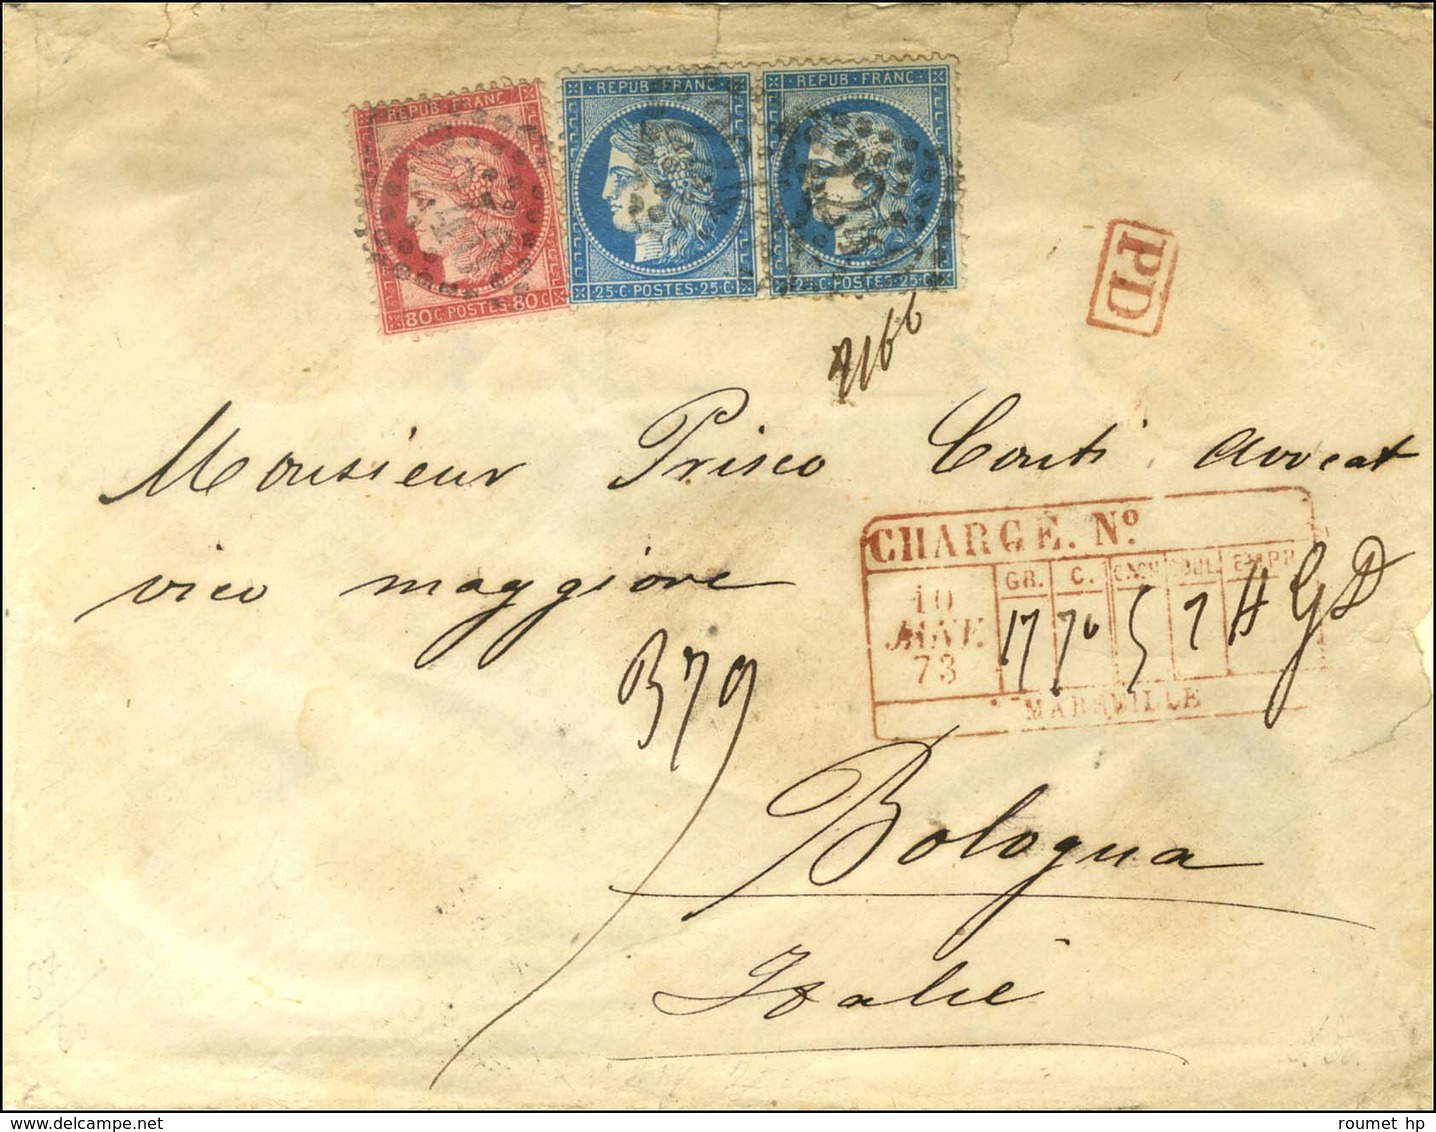 REPUB·FRANC
80C·POSTES·80C
REPUB·FRANC
25·C·POSTES·25·C
REPUB·FRANC
25·C·POSTES·25·C
PD
2166
Monsieur Prisco Conti Avocat
CHARGÉ. Nº
GR. C. EMPR
10 JANV. 73
17 70 5 7 H GD
MARSEILLE
vico maggiore
379
Bologna
Italie
57
60
roumet hp